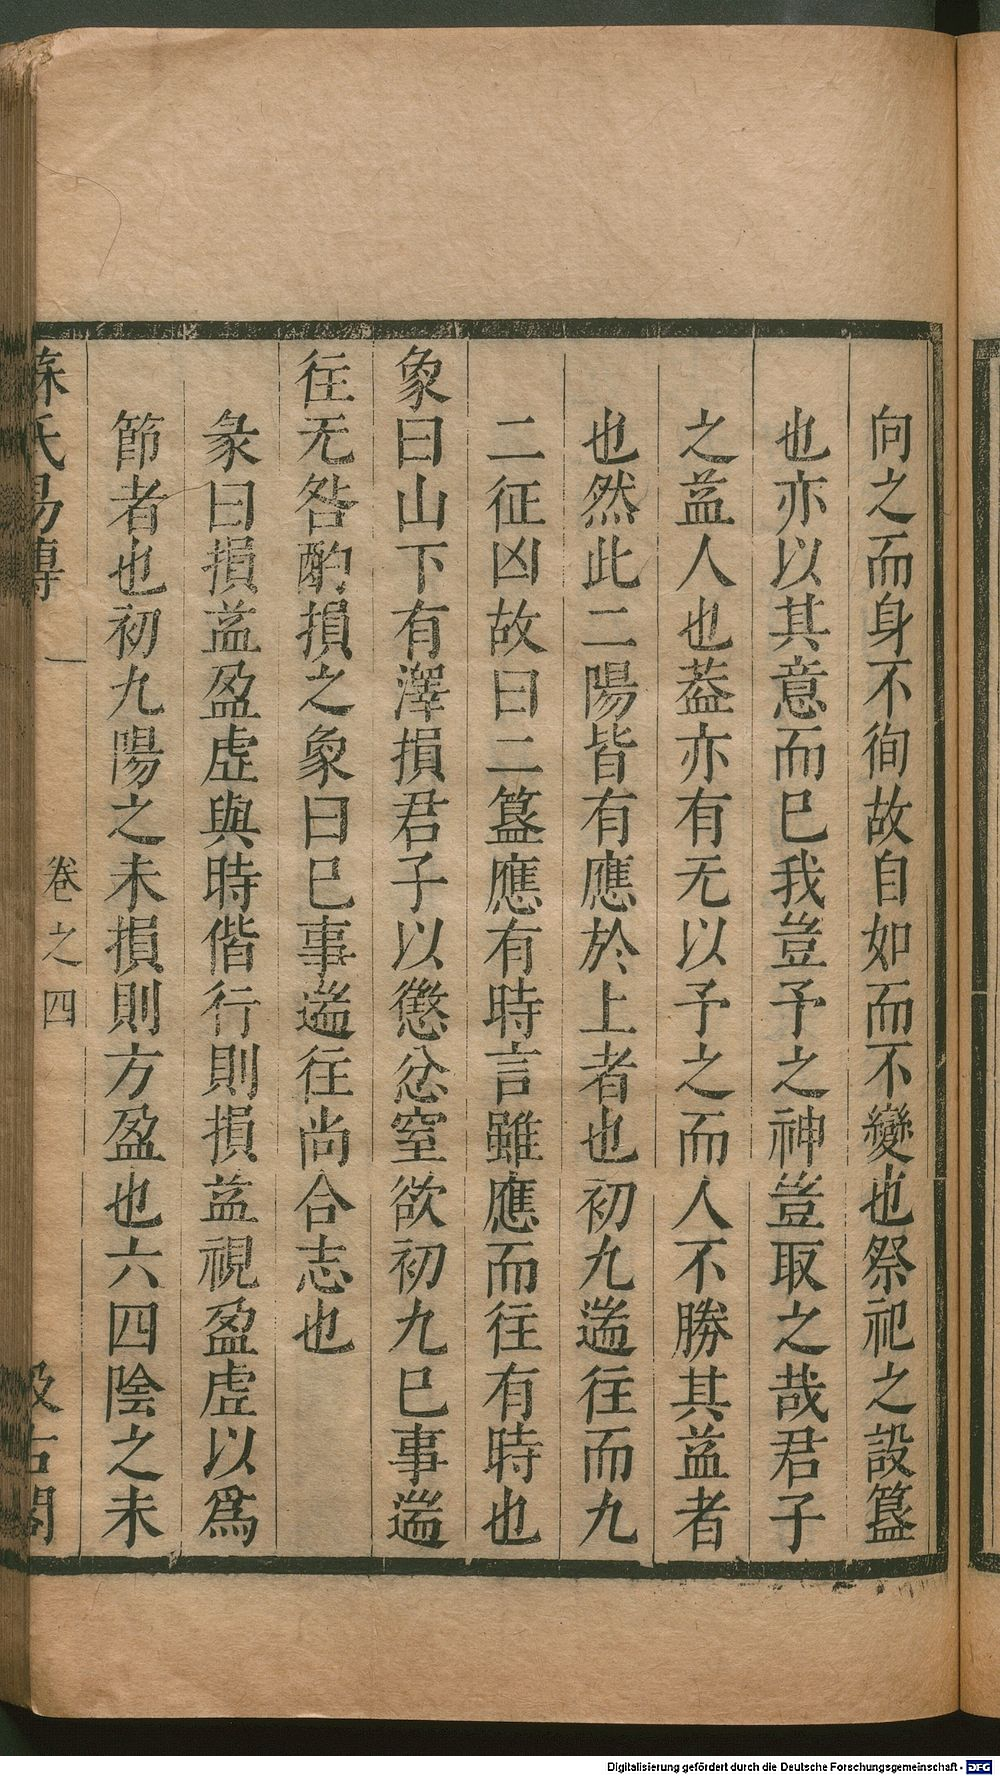 向之而身不徇故自如而不變也祭祀之設簋
也亦以其意而已我豈予之神豈取之哉君子
之益人也葢亦有无以予之而人不勝其益者
也然此二陽皆有應於上者也初九遄往而九
二征凶故曰二簋應有時言雖應而往有時也
象曰山下有澤損君子以懲忿窒欲初九巳事遄
往无咎酌損之象曰巳事遄往尚合志也
彖曰損益盈虛與時偕行則損益視盈虛以爲
節者也初九陽之未損則方盈也六四陰之未
蘇氏易傳 卷之四 汲古閣
Digitalisierung gefördert durch die Deutsche Forschungsgemeinschaft - DFG